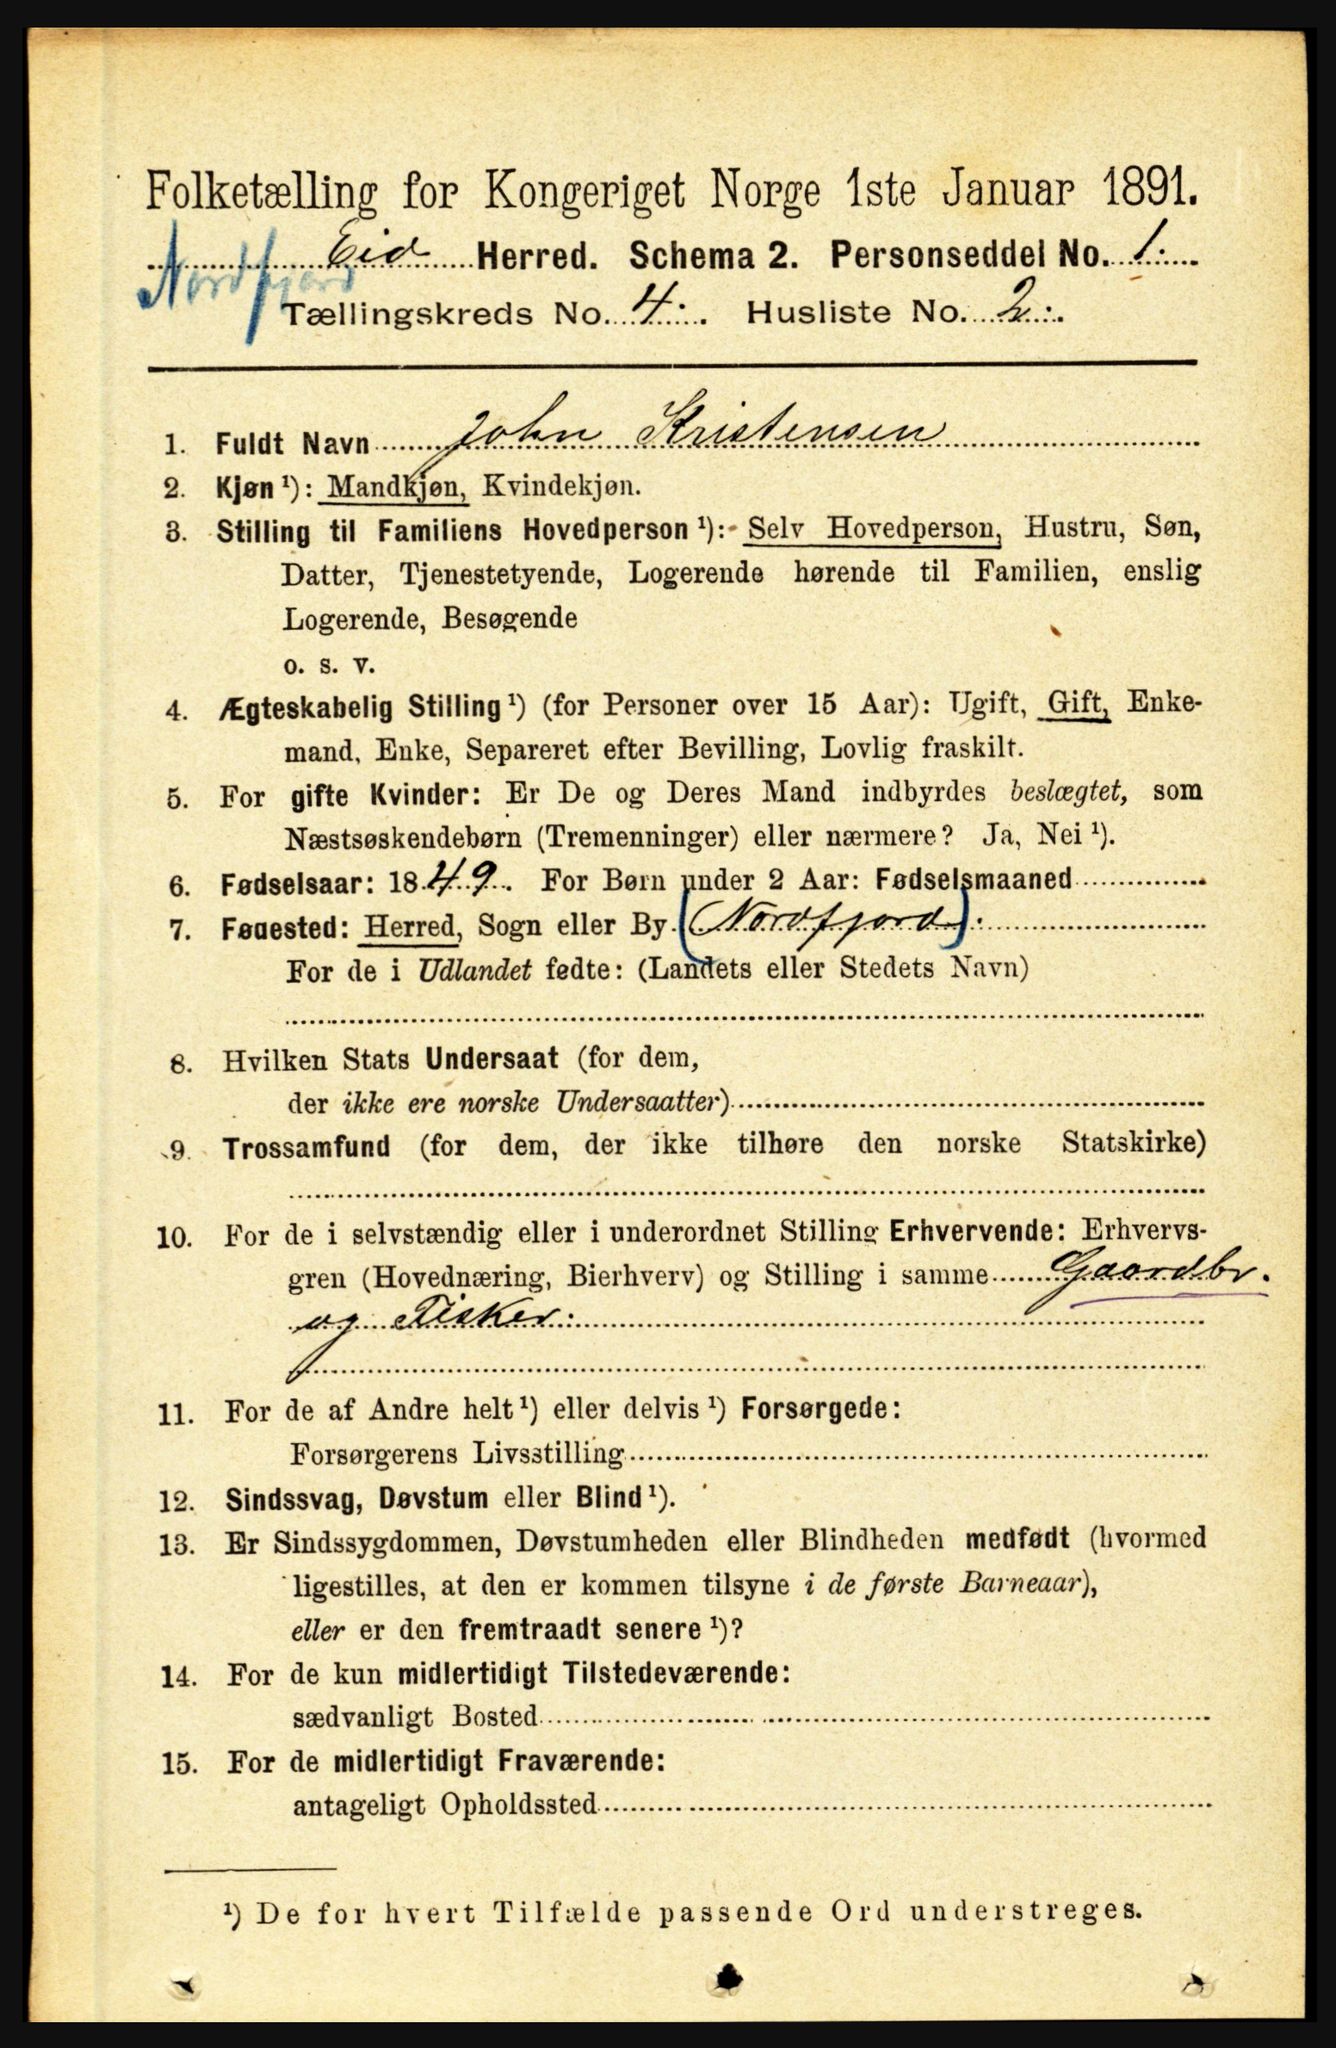 Folketælling for Kongeriget Norge 1ste Januar 1891.
Eid Herred. Schema 2. Personseddel No. 1.
Nordfjord
Tællingskreds No. 4. Husliste No. 2.
1. Fuldt Navn John Kristensen
2. Kjøn ¹): Mandkjøn, Kvindekjøn.
3. Stilling til Familiens Hovedperson ¹): Selv Hovedperson, Hustru, Søn,
Datter, Tjenestetyende, Logerende hørende til Familien, enslig
Logerende, Besøgende
o. s. v.
4. Ægteskabelig Stilling ¹) (for Personer over 15 Aar): Ugift, Gift, Enke-
mand, Enke, Separeret efter Bevilling, Lovlig fraskilt.
5. For gifte Kvinder: Er De og Deres Mand indbyrdes beslægtet, som
Næstsøskendebørn (Tremenninger) eller nærmere? Ja, Nei ¹).
6. Fødselsaar: 1849. For Børn under 2 Aar: Fødselsmaaned
7. Føдested: Herred, Sogn eller By (Nordfjord).
For de i Udlandet fødte: (Landets eller Stedets Navn)
8. Hvilken Stats Undersaat (for dem,
der ikke ere norske Undersaatter)
9. Trossamfund (for dem, der ikke tilhøre den norske Statskirke)
10. For de i selvstændig eller i underordnet Stilling Erhvervende: Erhvervs-
gren (Hovednæring, Bierhverv) og Stilling i samme Gaardbr.
og Fisker.
11. For de af Andre helt ¹) eller delvis ¹) Forsørgede:
Forsørgerens Livsstilling
12. Sindssvag, Døvstum eller Blind ¹).
13. Er Sindssygdommen, Døvstumheden eller Blindheden medfødt (hvormed
ligestilles, at den er kommen tilsyne i de første Barneaar),
eller er den fremtraadt senere ¹)?
14. For de kun midlertidigt Tilstedeværende:
sædvanligt Bosted
15. For de midlertidigt Fraværende:
antageligt Opholdssted
¹) De for hvert Tilfælde passende Ord understreges.